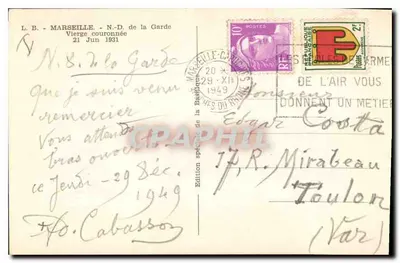 L. B. - MARSEILLE. - N.-D. de la Garde
Vierge couronnée
21 Juin 1931
N.S. de la Garde
que je suis venu
remercier
Vous attend
bras ouverts
ce Jeudi - 29 Déc.
1949
Ad. Cabasson
Edition spéciale de la Basilique
10F
RF
POSTES
2F
MARSEILLE
20
29-XII
1949
BCHES DU RHONE
L'ARMEE
DE L'AIR VOUS
DONNENT UN METIER
Monsieur
Edgar Costa
17, R. Mirabeau
Toulon
(Var)
CPARAMA